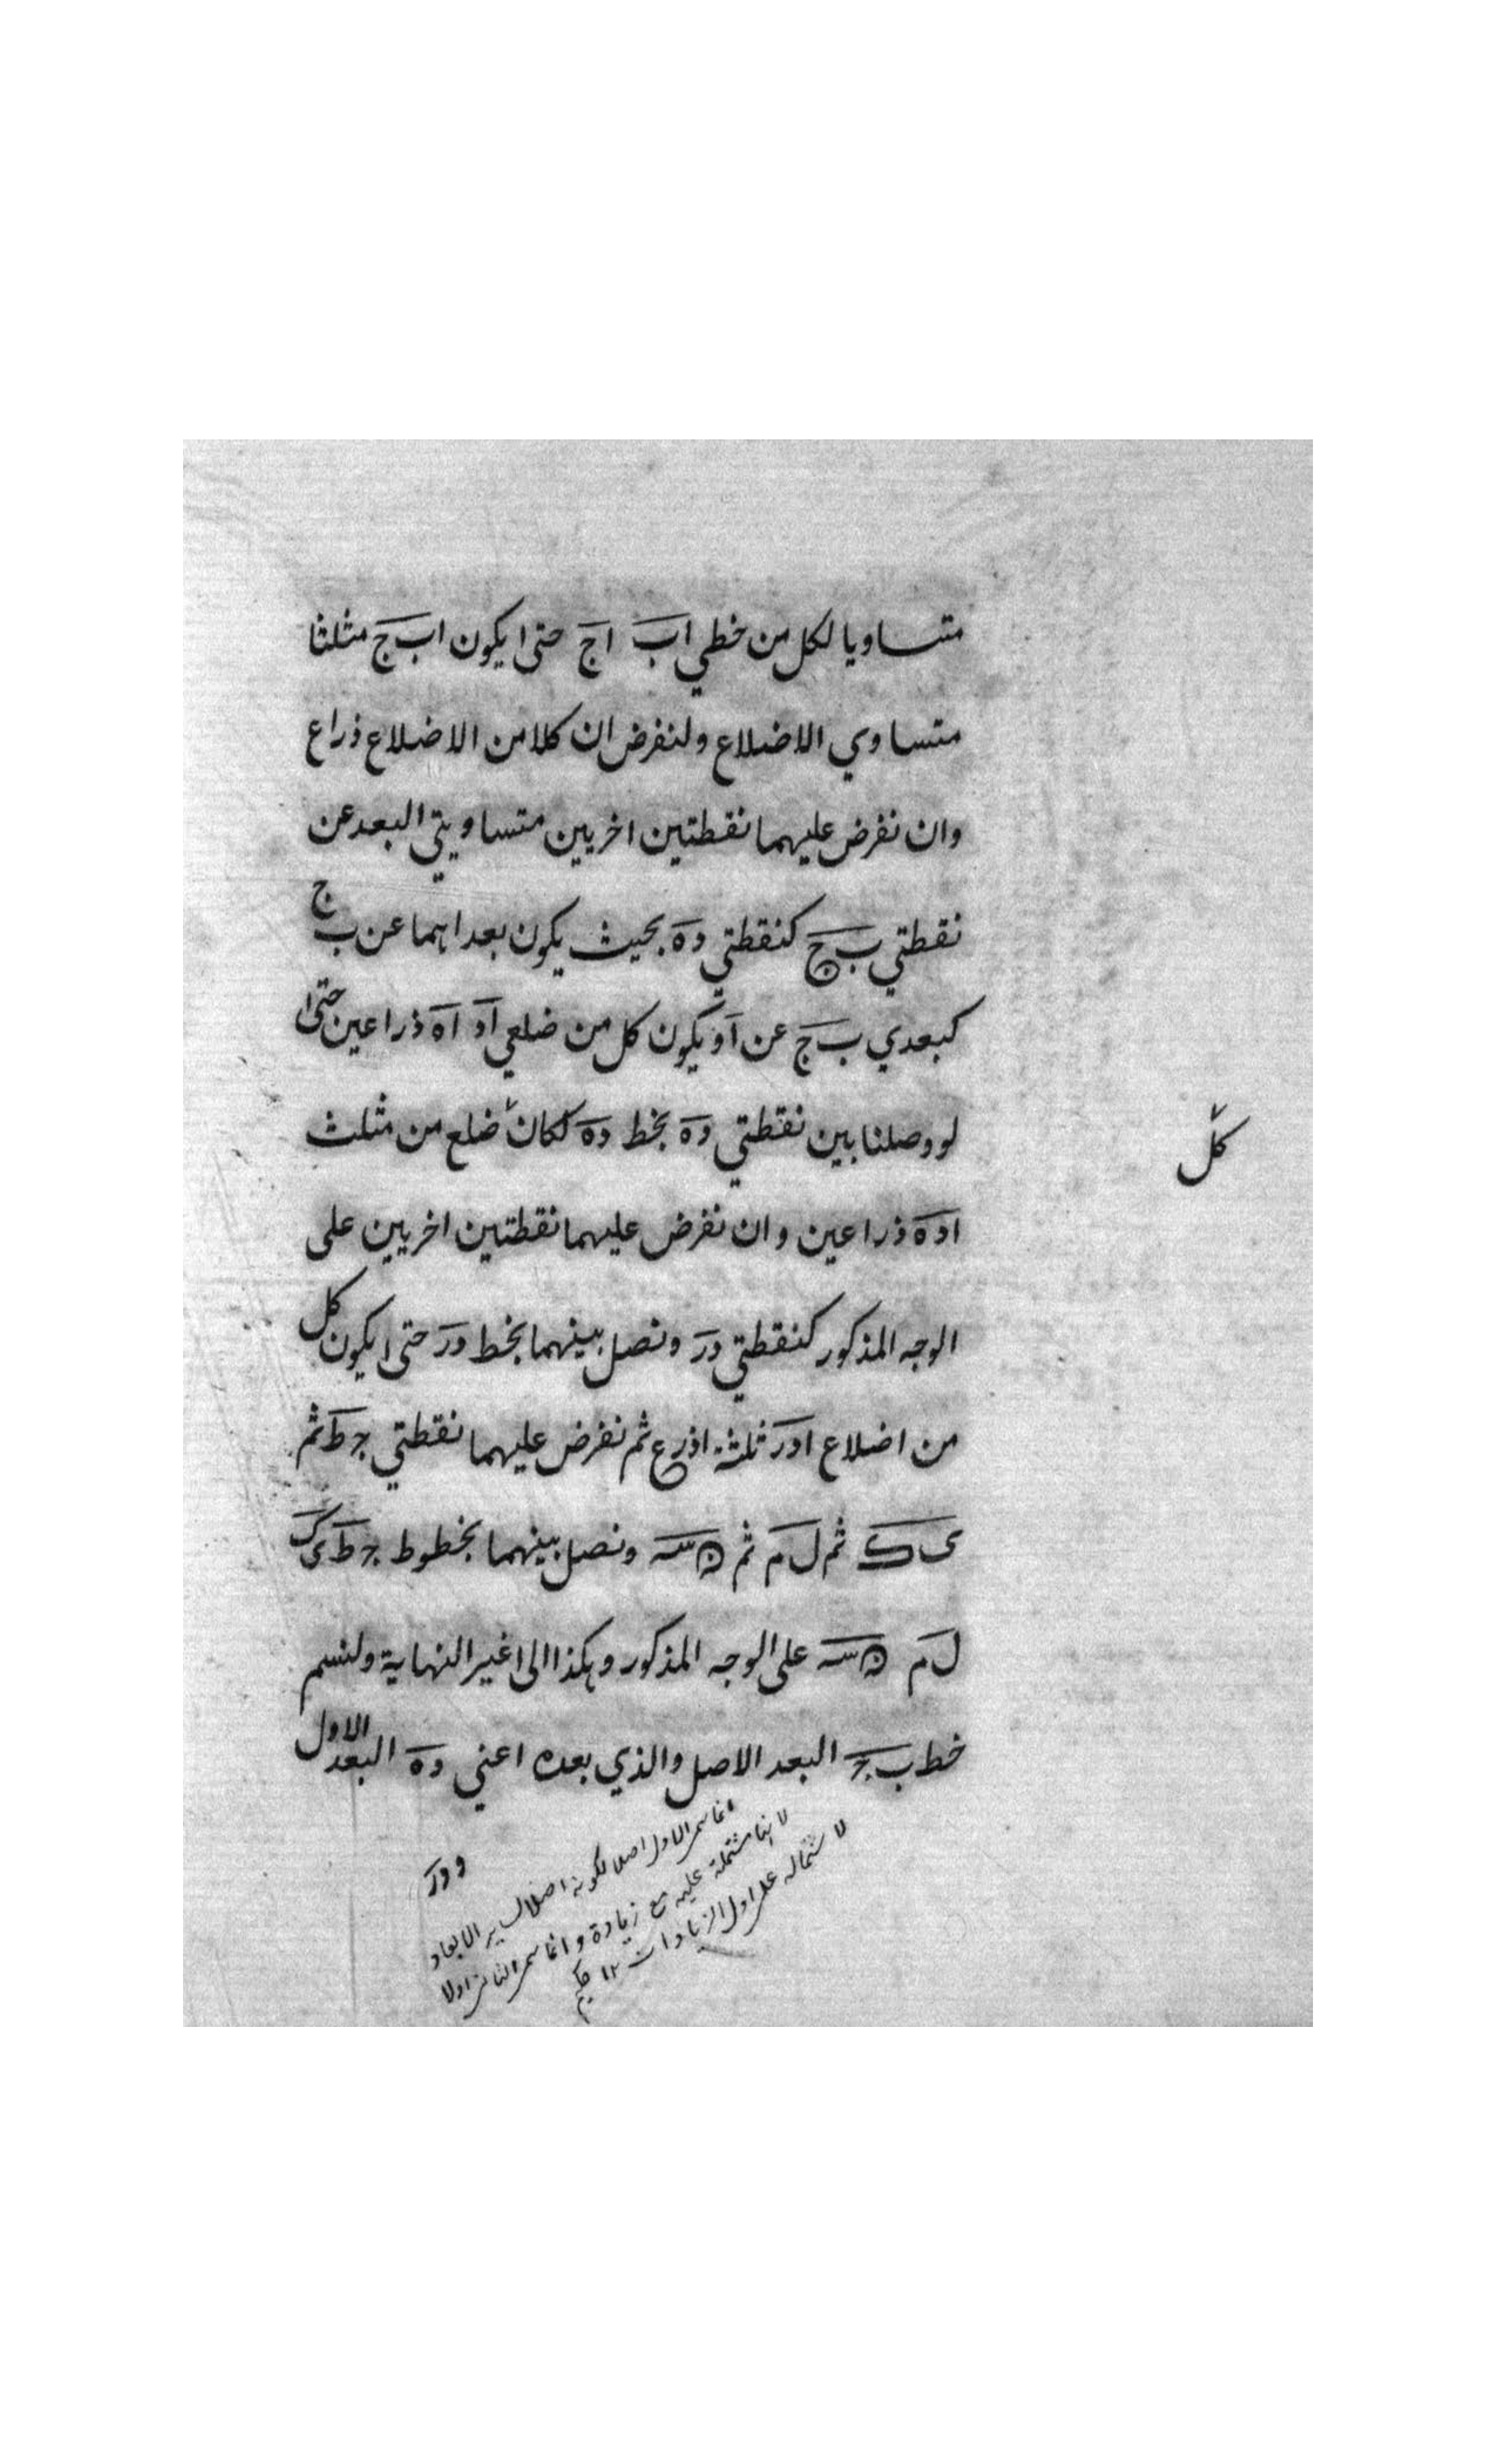 متساويا لكل من خطي اب اج حتى يكون اب ج مثلثا
متساوي الاضلاع ولنفرض ان كلا من الاضلاع ذراع
وان نفرض عليهما نقطتين اخريين متساويتي البعد عن
نقطتي ب ج كنقطتي د ه بحيث يكون بعداهما عن ب ج
كبعدي ب ج عن ا و يكون كل من ضلعي اد اه ذراعين حتى
لو وصلنا بين نقطتي ده بخط ده لكان ضلع من مثلث
كل
اده ذراعين وان نفرض عليهما نقطتين اخريين على
الوجه المذكور كنقطتي و ر ونصل بينهما بخط ور حتى يكون كل
من اضلاع اور ثلثة اذرع ثم نفرض عليهما نقطتي ح ط ثم
ى ك ثم ل م ثم ن س ونصل بينهما بخطوط ح ط ى ك
ل م ن س على الوجه المذكور وهكذا الى غير النهاية ولنسم
خط ب ج البعد الاصل والذي بعده اعني ده البعد الاول
و ور
انما سمى الاول اصلا لكونه اصلا لسائر الابعاد
لانها مشتملة عليه مع زيادة وانما سمى الثانى اولا
لاشتماله على اول الزيادات ١٢